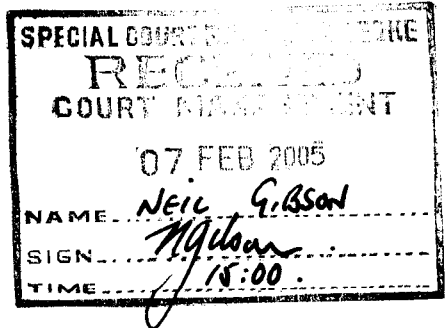 SPECIAL COURT
RECEIVED
COURT MANAGEMENT
07 FEB 2005
NAME NEIL GIBSON
SIGN NGibson
TIME 15:00.